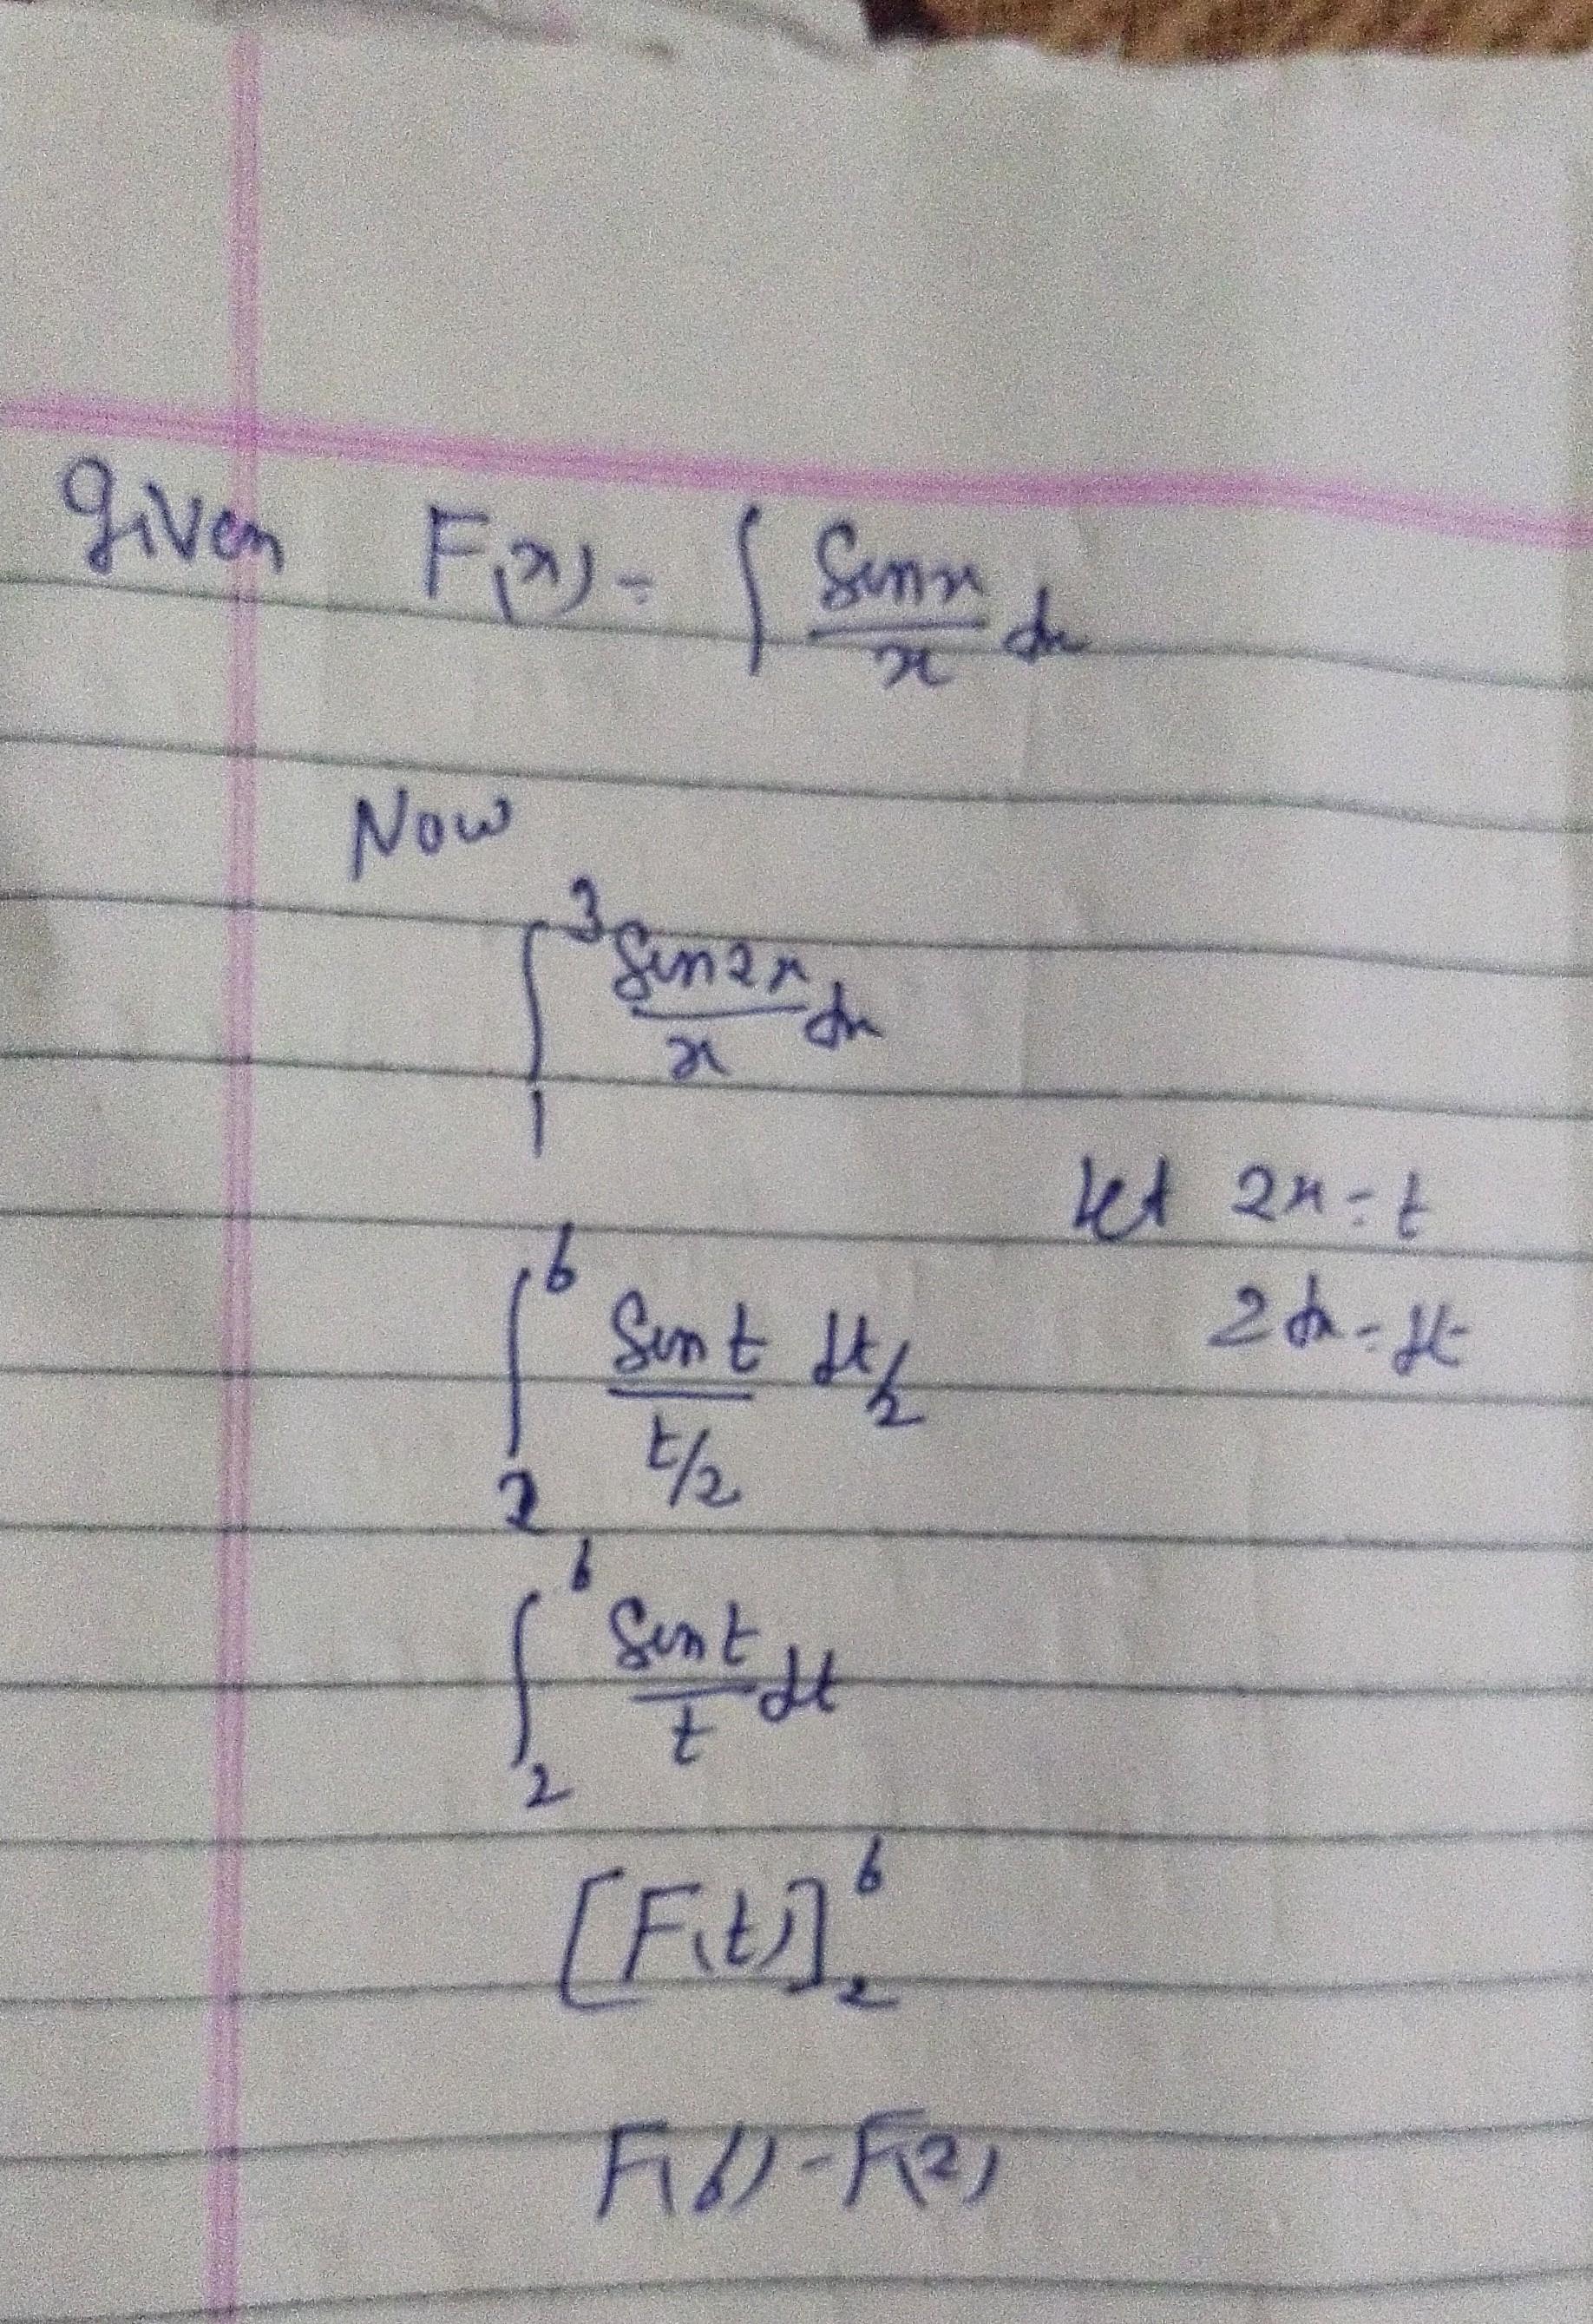 Given F(x) = ∫ sin x / x dx
Now
∫₁³ sin 2x / x dx
let 2x = t
2dx = dt
∫₂⁶ sin t / (t/2) dt/2
∫₂⁶ sin t / t dt
[F(t)]₂⁶
F(6) - F(2)